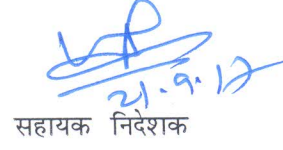 21.9.17
सहायक निदेशक